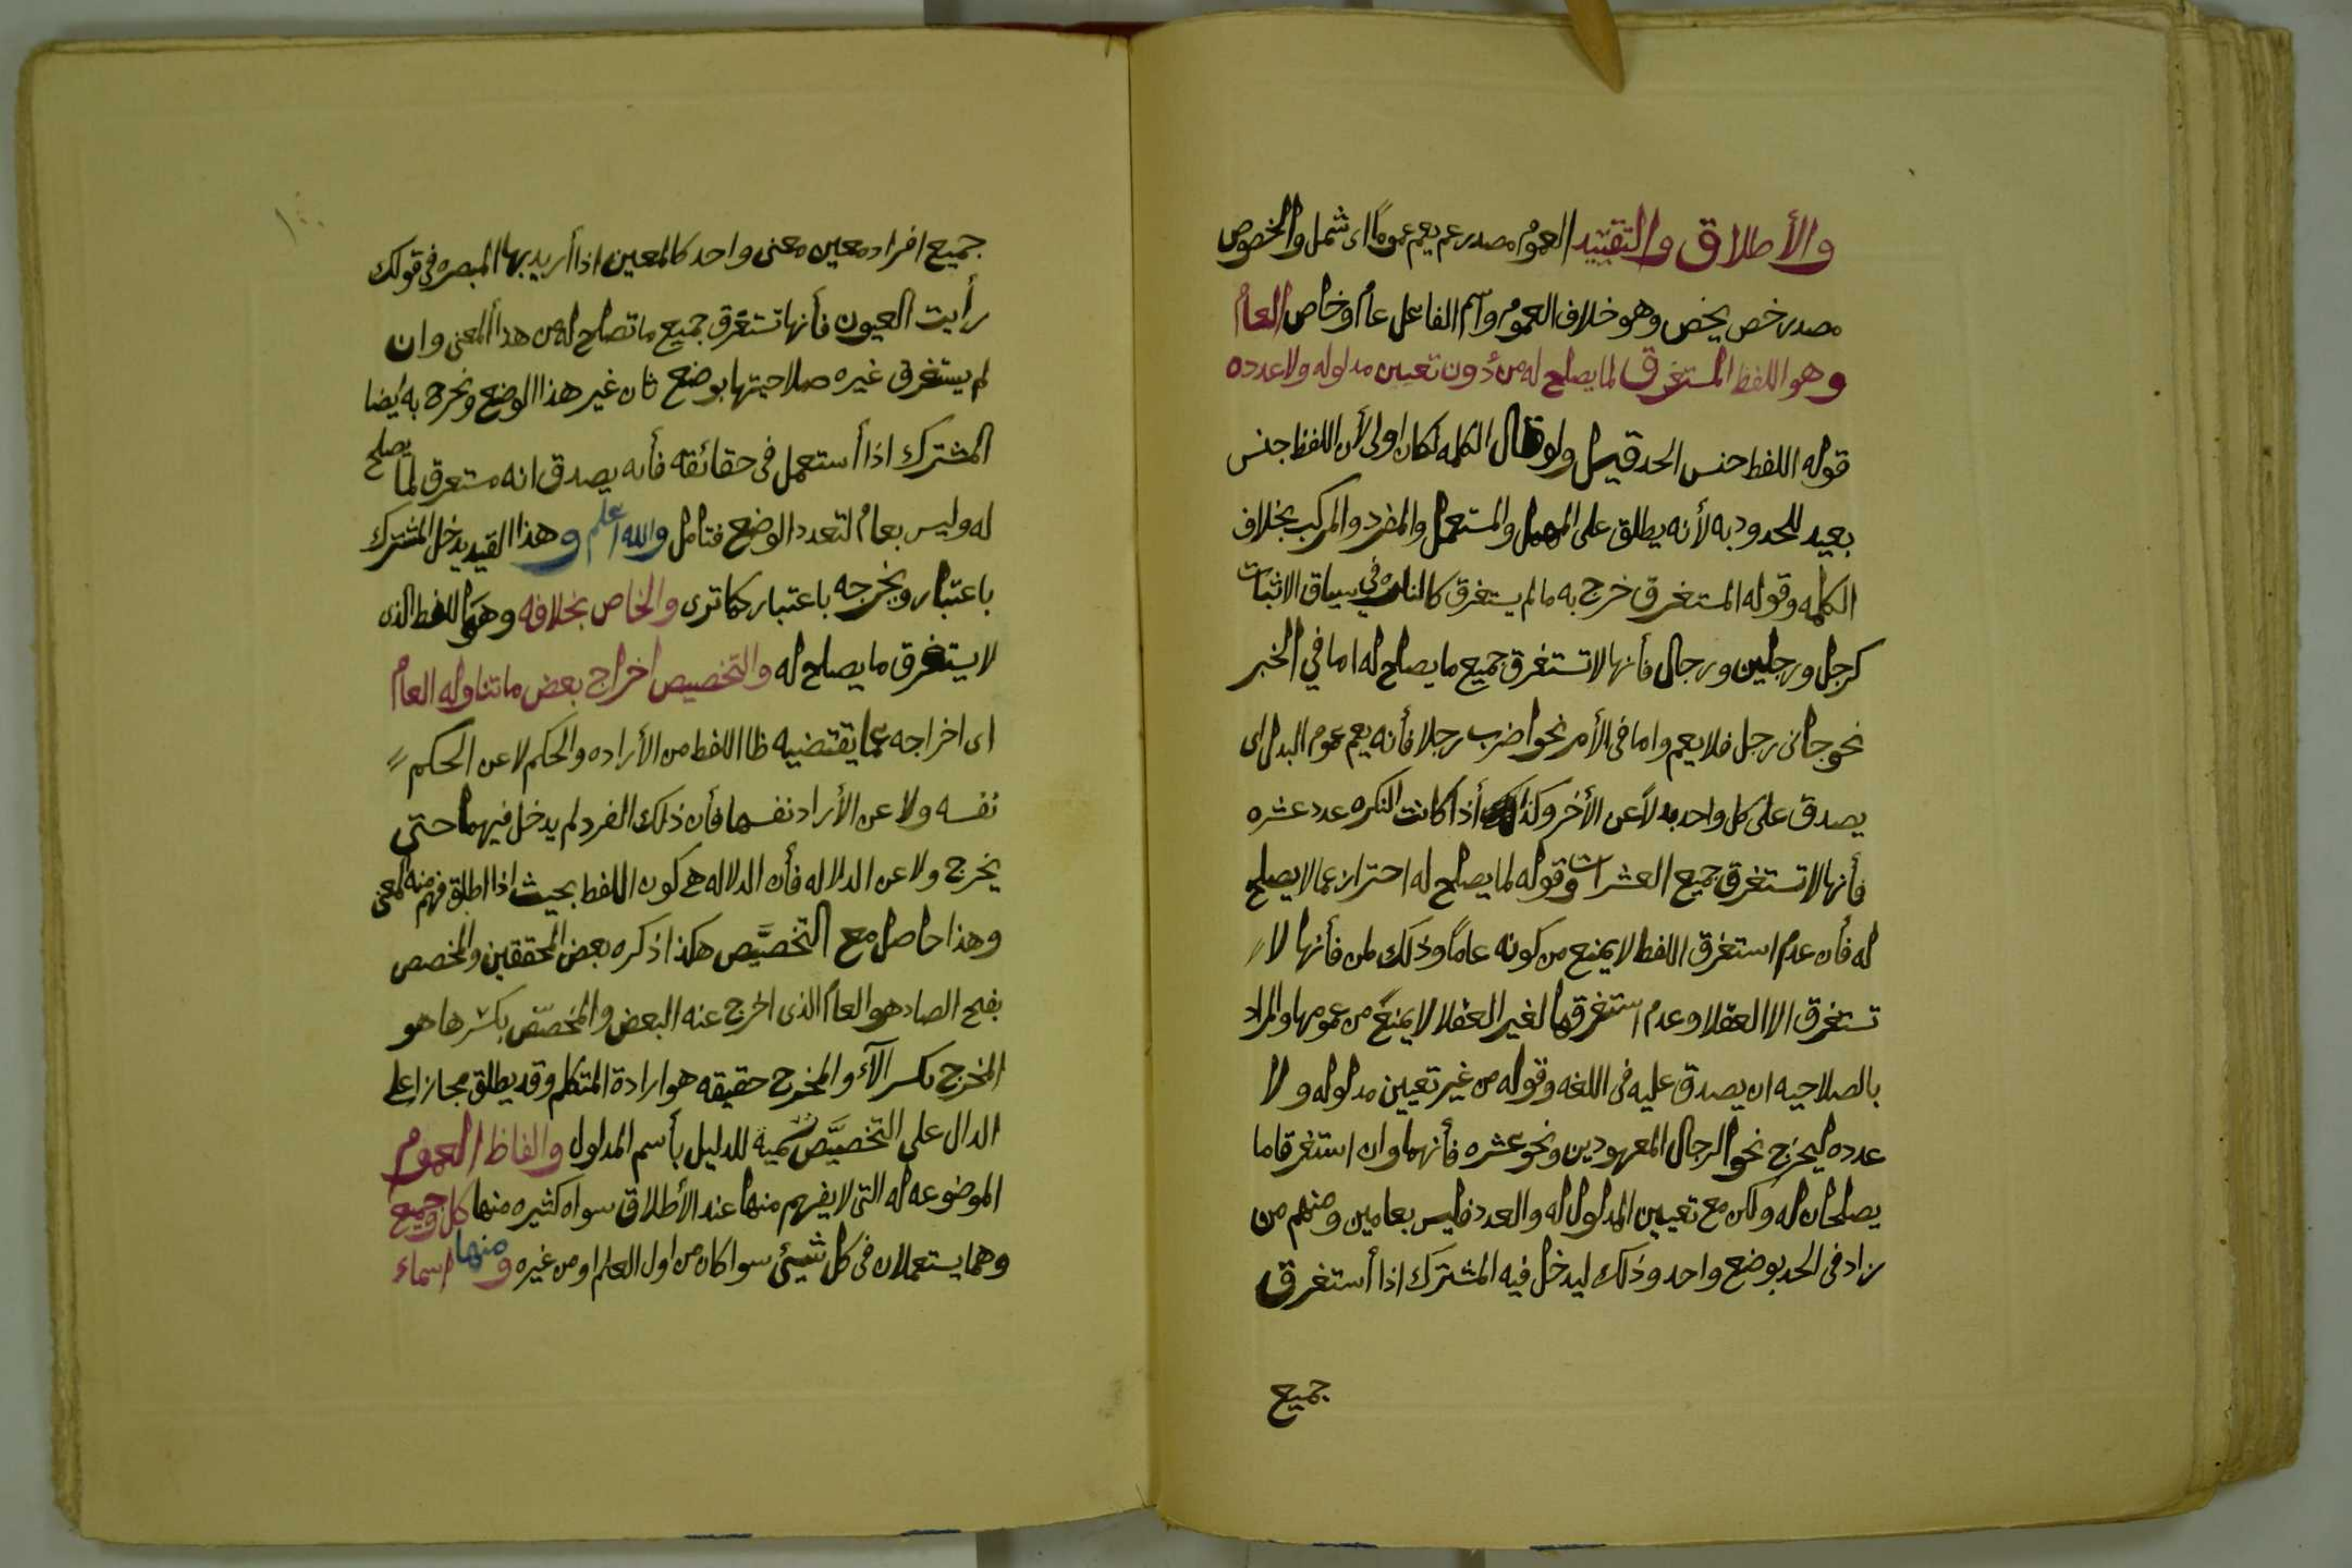 والأطلاق والتقييد العموم مصدر عم يعم عموماً اى شمل والخصوص
مصدر خص يخص وهو خلاف العموم واسم الفاعل عام وخاص العام
وهو اللفظ المستغرق لما يصلح له من دون تعيين مدلوله ولا عدده
قوله اللفظ جنس الحد قيل ولو قال الكلمه لكان اولى لأن اللفظ جنس
بعيد للحدود به لأنه يطلق على المهمل والمستعمل والمفرد والمركب بخلاف
الكلمه وقوله المستغرق خرج به ما لم يستغرق كالنكره في سياق الاثبات
كرجل ورجلين ورجال فأنها لا تستغرق جميع ما يصلح له اما في الخبر
نحو جانى رجل فلا يعم واما فى الأمر نحو اضرب رجلا فأنه يعم عموم البدل اى
يصدق على كل واحد بدلاً عن الأخر وكذلك أذا كانت النكره عدد عشره
فأنها لا تستغرق جميع العشرات وقوله لما يصلح له احتراز عما لا يصلح
له فأن عدم استغرق اللفظ لا يمنع من كونه عاماً وذلك لمن فأنها لا
تستغرق الا العقلا وعدم استغرقها لغير العقلا لا يمنع من عمومها والمراد
بالصلاحيه ان يصدق عليه فى اللغه وقوله من غير تعيين مدلوله ولا
عدده ليخرج نحو الرجال المعهودين ونحو عشره فأنهما وان استغرقا ما
يصلحان له ولكن مع تعيين المدلول له والعدد فليس بعامين ومنهم من
زاد فى الحد بوضع واحد وذلك ليدخل فيه المشترك اذا أستغرق
جميع
١٤٠
جميع افراد معين معنى واحد كالمعين اذا أريد بها المبصره فى قولك
رأيت العيون فأنها تستغرق جميع ما تصلح له من هذا المعنى وان
لم يستغرق غيره صلاحيتها بوضع ثان غير هذا الوضع ونخرج به ايضا
المشترك اذا أستعمل فى حقائقه فأنه يصدق انه مستغرق لما يصلح
له وليس بعام لتعدد الوضع فتامل والله اعلم وهذا القيد يدخل المشترك
باعتبار ويخرجه باعتبار كما ترى والخاص بخلافه وهو اللفظ الذى
لا يستغرق ما يصلح له والتخصيص اخراج بعض ما تناوله العام
اى اخراجه عما يقتضيه ظا اللفظ من الأراده والحكم لا عن الحكم
نفسه ولا عن الأراد نفسها فأن ذلك الفرد لم يدخل فيهما حتى
يخرج ولا عن الدلاله فأن الدلاله هى كون اللفظ بحيث اذا اطلق فهم منه المعنى
وهذا حاصل مع التخصيص هكذا ذكره بعض المحققين والمخصص
بفتح الصاد هو العام الذى اخرج عنه البعض والمخصص بكسرها هو
المخرج بكسر الرآء والمخرج حقيقه هو ارادة المتكلم وقد يطلق مجازا على
الدال على التخصيص تسمية للدليل بأسم المدلول والفاظ العموم
الموضوعه له التى لا يفهم منها عند الأطلاق سواه كثيره منها كل وجميع
وهما يستعملان فى كل شيئ سوا كان من اول العلم او من غيره ومنها اسماء